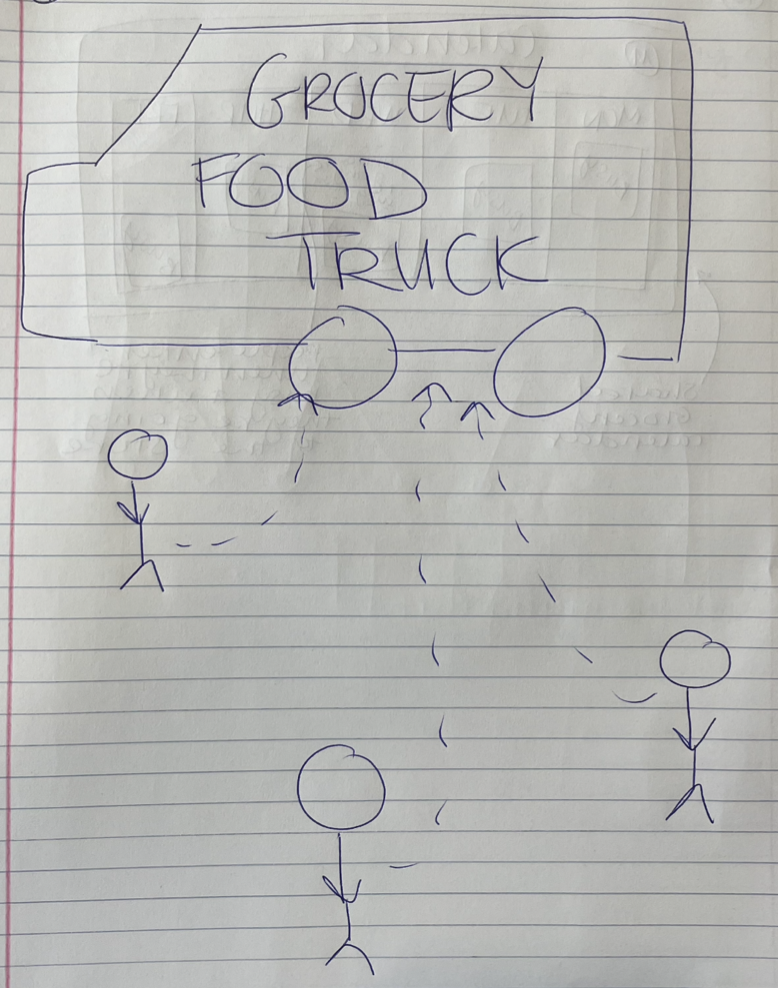 GROCERY
FOOD
TRUCK